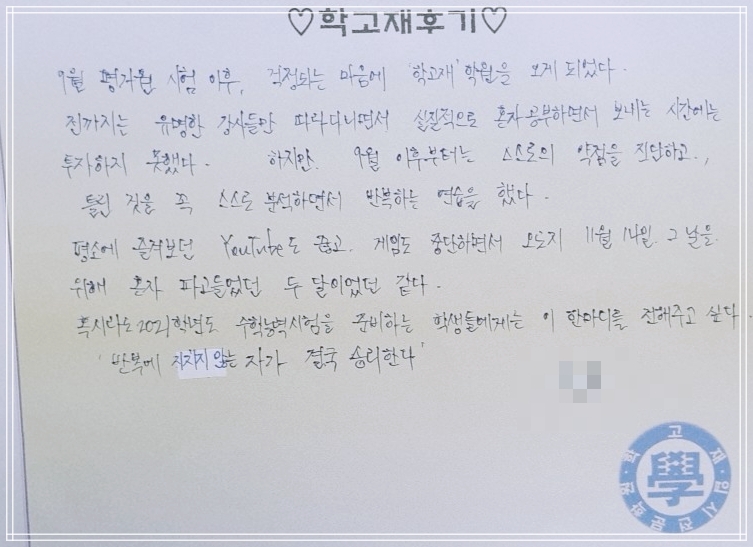 ♡학고재후기♡
9월 평가원 시험 이후, 걱정되는 마음에 '학고재' 학원을 오게 되었다.
전까지는 유명한 강사들만 따라다니면서 실질적으로 혼자공부하면서 보내는 시간에는
투자하지 못했다. 하지만, 9월 이후부터는 스스로의 약점을 진단하고,
틀린 것을 꼭 스스로 분석하면서 반복하는 연습을 했다.
평소에 즐겨보던 YouTube도 끊고, 게임도 중단하면서 오로지 11월 14일, 그 날을
위해 혼자 파고들었던 두 달이었던 같다.
혹시라도 2021학년도 수학능력시험을 준비하는 학생들에게는 이 한마디를 전해주고 싶다.
'반복에 지치지 않는 자가 결국 승리한다'
학고재 입시전문학원
學